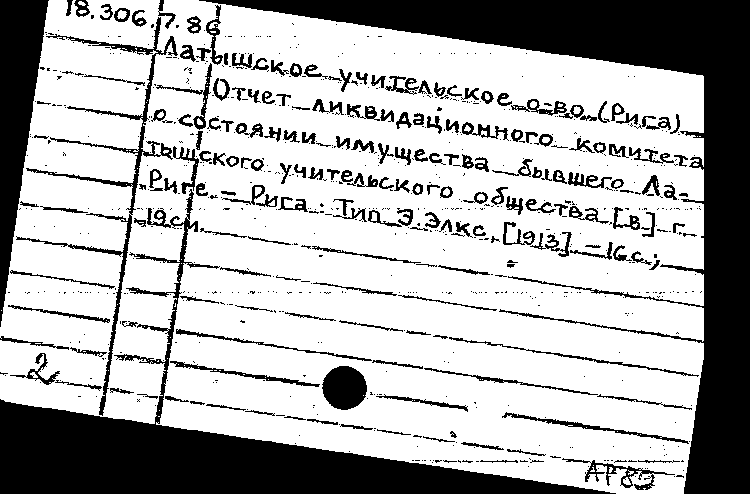 18.306.7.86
Латышское учительское о-во (Рига)
Отчет ликвидационного комитета
о состоянии имущества бывшего Ла-
тышского учительского общества [в] г.
Риге. – Рига: Тип. Э. Элкс, [1913]. – 16 с.;
19 см.
2
АР 89